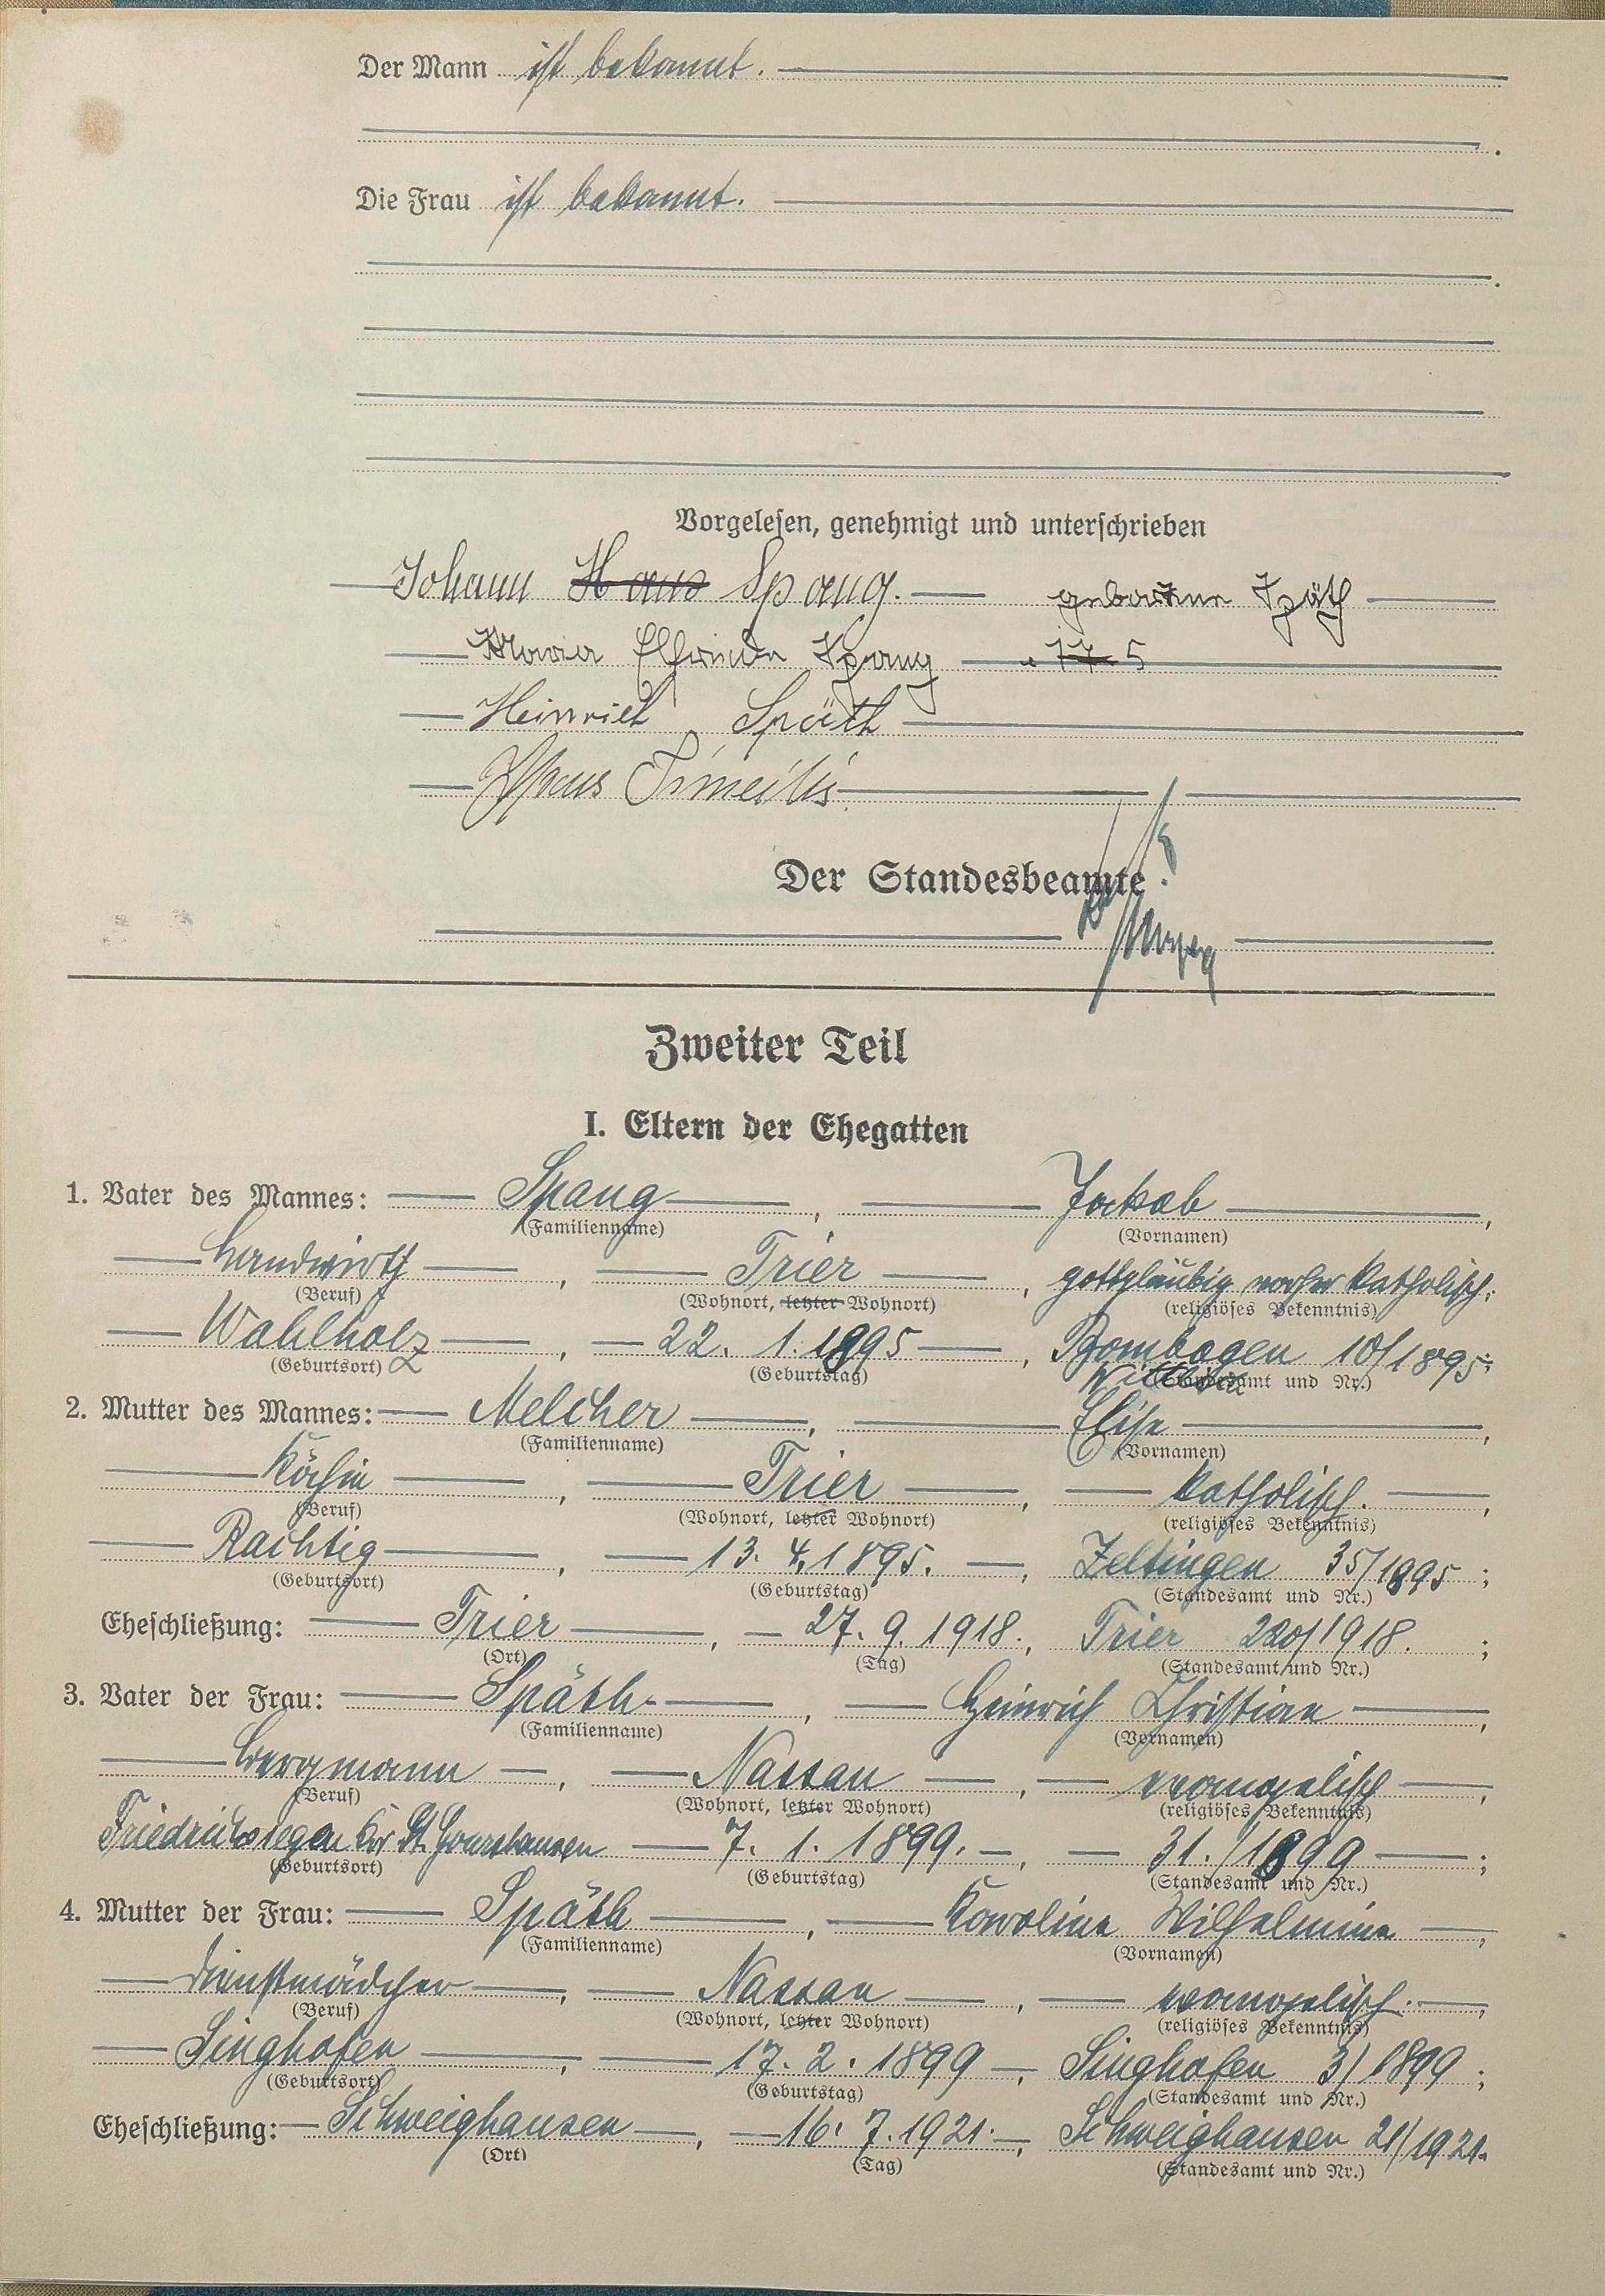 Der Mann ist bekannt.
Die Frau ist bekannt.
Vorgelesen, genehmigt und unterschrieben
Johann Hans Spang. geborene Späth
Maria Elfriede Spang 17 5
Heinrich Späth
Hans
Der Standesbeamte
Zweiter Teil
I. Eltern der Ehegatten
1. Vater des Mannes: Spang, Jakob,
(Familienname) (Vornamen)
Landwirt, Trier, gottgläubig vorher katholisch;
(Beruf) (Wohnort, letzter Wohnort) (religiöses Bekenntnis)
Wahlholz, 22. 1. 1895, Bombogen 10/1895;
(Geburtsort) (Geburtstag) Wittlich (Standesamt und Nr.)
2. Mutter des Mannes: Melcher, Elise,
(Familienname) (Vornamen)
Köchin, Trier, katholisch.,
(Beruf) (Wohnort, letzter Wohnort) (religiöses Bekenntnis)
Rachtig, 13. 4. 1895., Zeltingen 35/1895;
(Geburtsort) (Geburtstag) (Standesamt und Nr.)
Eheschließung: Trier, 27. 9. 1918., Trier 220/1918.;
(Ort) (Tag) (Standesamt und Nr.)
3. Vater der Frau: Späth, Heinrich Christian,
(Familienname) (Vornamen)
Bergmann, Nassau, evangelisch,
(Beruf) (Wohnort, letzter Wohnort) (religiöses Bekenntnis)
Friedrichssegen Kr. St. Goarshausen 7. 1. 1899., 31./1899;
(Geburtsort) (Geburtstag) (Standesamt und Nr.)
4. Mutter der Frau: Späth, Karoline Wilhelmine,
(Familienname) (Vornamen)
Dienstmädchen, Nassau, evangelisch.,
(Beruf) (Wohnort, letzter Wohnort) (religiöses Bekenntnis)
Singhofen, 17. 2. 1899, Singhofen 3/1899;
(Geburtsort) (Geburtstag) (Standesamt und Nr.)
Eheschließung: Schweighausen, 16. 7. 1921., Schweighausen 21/1921.
(Ort) (Tag) (Standesamt und Nr.)